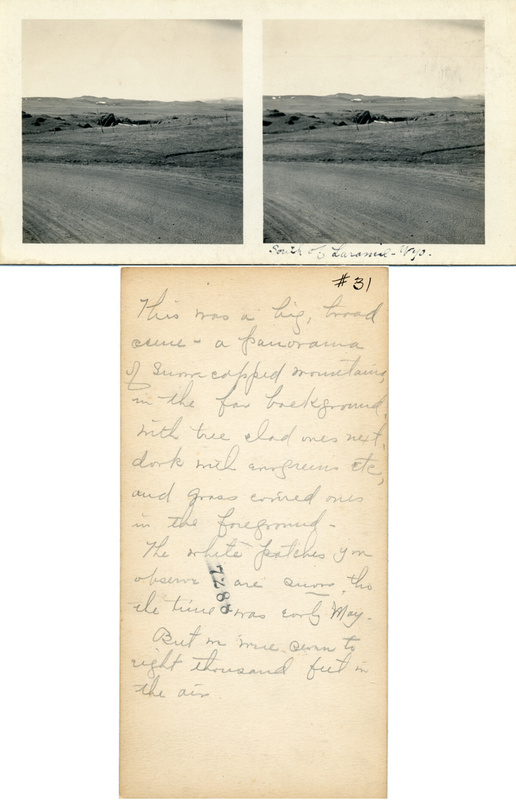 South of Laramie - Wyo.
#31
This was a big, broad
scene - a panorama
of Snow capped mountains
in the far background,
with tree clad ones next,
dark with evergreens etc,
and grass covered ones
in the foreground -
The white patches you
observe are snow, tho
the time was early May.
But we were seven to
eight thousand feet in
the air.